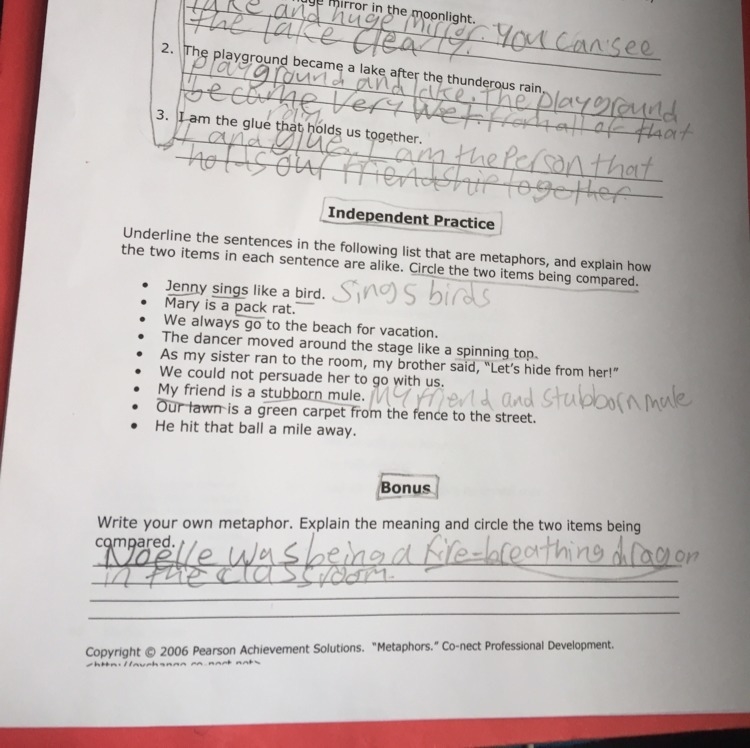 huge mirror in the moonlight.
lake and huge mirror. You can see
the lake clearly.
2. The playground became a lake after the thunderous rain.
playground and lake. the playground
became very wet. from all of that
rain.
3. I am the glue that holds us together.
I and glue. I am the Person that
holds our friendship together.
Independent Practice
Underline the sentences in the following list that are metaphors, and explain how
the two items in each sentence are alike. Circle the two items being compared.
• Jenny sings like a bird. Sings birds
• Mary is a pack rat.
• We always go to the beach for vacation.
• The dancer moved around the stage like a spinning top.
• As my sister ran to the room, my brother said, "Let's hide from her!"
• We could not persuade her to go with us.
• My friend is a stubborn mule. My friend and stubborn mule
• Our lawn is a green carpet from the fence to the street.
• He hit that ball a mile away.
Bonus
Write your own metaphor. Explain the meaning and circle the two items being
compared.
Noelle was being a fire-breathing dragon
in the classroom.
Copyright © 2006 Pearson Achievement Solutions. "Metaphors." Co-nect Professional Development.